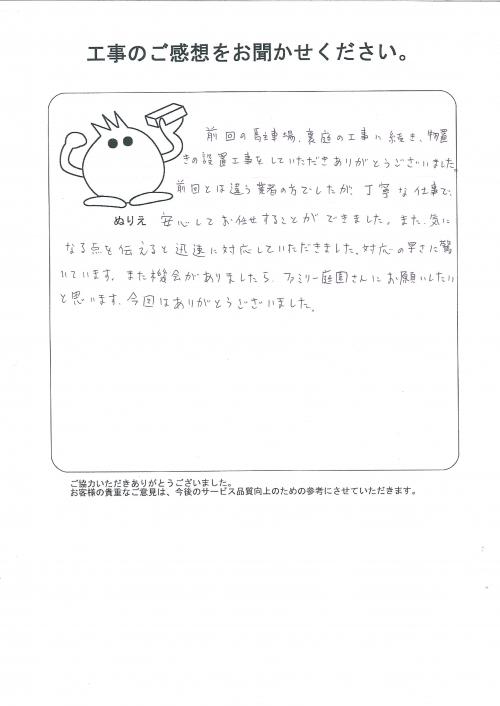 工事のご感想をお聞かせください。
前回の駐車場、裏庭の工事に続き、物置
きの設置工事をしていただきありがとうございました。
前回とは違う業者の方でしたが、丁寧な仕事で、
ぬりえ 安心してお任せすることができました。また、気に
なる点を伝えると迅速に対応していただきました。対応の早さに驚
いています。また機会がありましたら、ファミリー庭園さんにお願いしたい
と思います。今回はありがとうございました。
ご協力いただきありがとうございました。
お客様の貴重なご意見は、今後のサービス品質向上のための参考にさせていただきます。